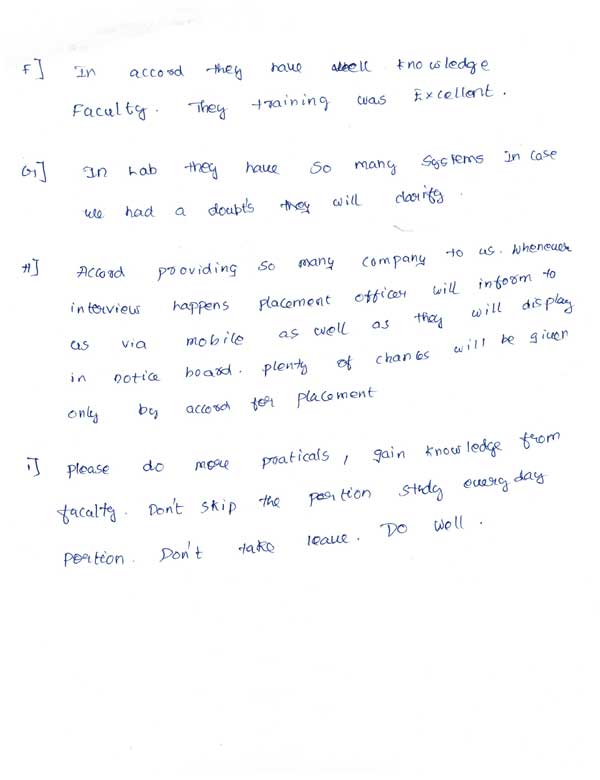 F] In accord they have well knowledge
Faculty. They training was Excellent.
G] In Lab they have so many systems In case
we had a doubts they will clarify.
H] Accord prooviding so many company to us. whenever
interview happens placement officer will inform to
us via mobile as well as they will display
in notice board. plenty of changes will be given
only by accord for placement
i] please do more praticals, gain knowledge from
faculty. Don't skip the portion study every day
portion. Don't take leave. Do well.